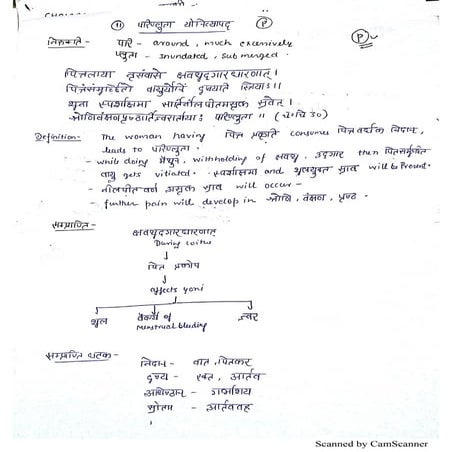 (11) परिप्लुता योनिव्यापद् (P)
निरुक्ति - परि - around, much excessively (P)
प्लुता - inundated, submerged.
पित्तलाया नृसंवासे क्षवथूद्गारधारणात् ।
पित्तसंमूर्च्छितो वायुर्योनिं दूषयति स्त्रियाः ।।
शूना स्पर्शाक्षमा सार्तिर्नीलपीतमसृक् स्रवेत् ।
श्रोणिवंक्षणपृष्ठार्तिज्वरार्तायाः परिप्लुता ।। (च चि 30)
Definition - The woman having पित्त प्रकृति consumes पित्तवर्धक निदान,
leads to परिप्लुता.
- while doing मैथुन, withholding of क्षवथु, उद्गार then पित्तसंमूर्च्छित
वायु gets vitiated. स्पर्शाक्षमा and शूलयुक्त स्राव will be Present.
- नीलपीतवर्ण असृक स्राव will occur -
- further pain will develop in श्रोणि, वंक्षण, पृष्ठ.
सम्प्राप्ति -
क्षवथूद्गारधारणात्
During coitus
पित्त प्रकोप
affects yoni
शूल of menstrual bleeding ज्वर
सम्प्राप्ति घटक -
निदान - वात, पित्तकर
दूष्य - रक्त, आर्तव
अधिष्ठान - गर्भाशय
स्रोतस - आर्तववह
Scanned by CamScanner